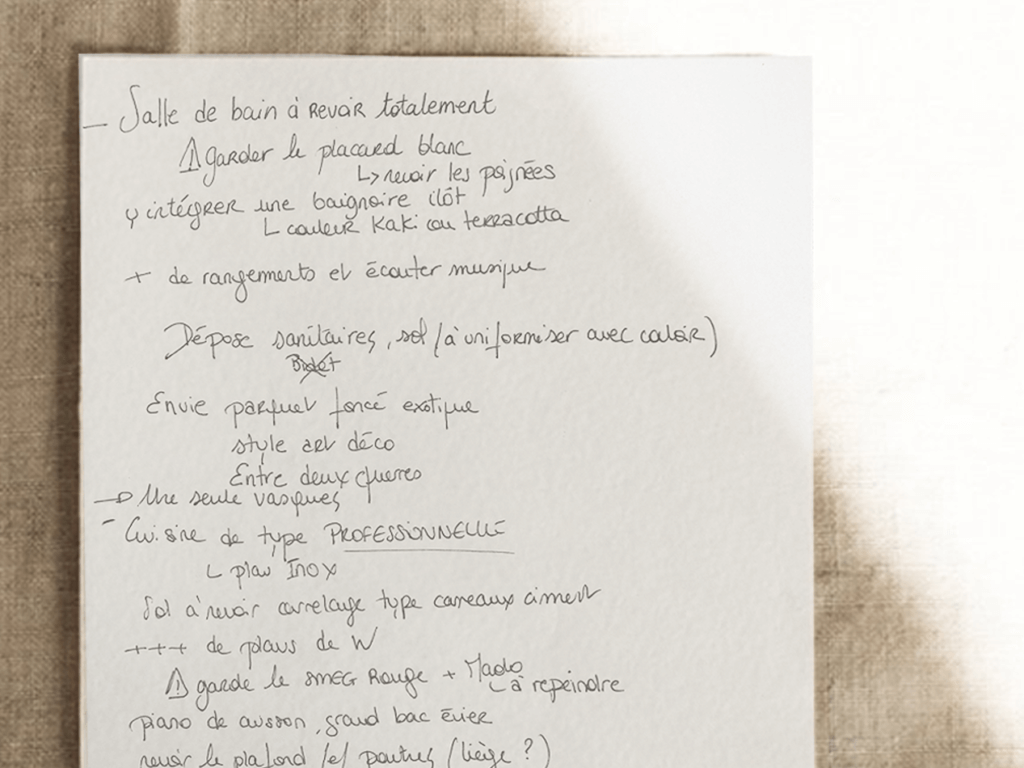 - Salle de bain à REVOIR totalement
⚠ garder le placard blanc
↳ revoir les poignées
↳ intégrer une baignoire ilôt
↳ couleur Kaki ou terracotta
+ de rangements et écouter musique
Dépose sanitaires, sol (à uniformiser avec couloir)
Bidet
Envie parquet foncé exotique
style art déco
Entre deux guerres
→ Une seule vasques
- Cuisine de type PROFESSIONNELLE
↳ plan Inox
Sol à revoir carrelage type carreaux ciment
+++ de plans de W
⚠ garde le SMEG Rouge + Mado
↳ à repeindre
piano de cuisson, grand bac évier
revoir le plafond (et poutres (liège ?)